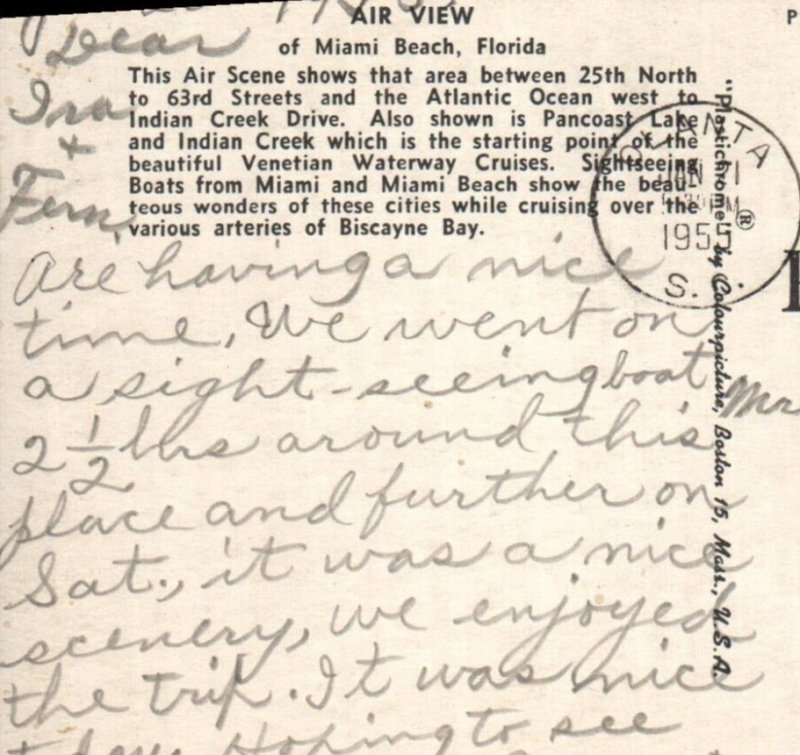 AIR VIEW
of Miami Beach, Florida
This Air Scene shows that area between 25th North
to 63rd Streets and the Atlantic Ocean west to
Indian Creek Drive. Also shown is Pancoast Lake
and Indian Creek which is the starting point of the
beautiful Venetian Waterway Cruises. Sightseeing
Boats from Miami and Miami Beach show the beau-
teous wonders of these cities while cruising over the
various arteries of Biscayne Bay.
Dear
Ira
+
Fern,
Are having a nice
time, We went on
a sight-seeing boat
2 1/2 hrs around this
place and further on
Sat., it was a nice
scenery, we enjoyed
the trip. It was nice
Hoping to see
"Plastichrome"® by Colourpicture, Boston 15, Mass., U.S.A.
ANTA
JAN
PM
195
S.
Mr
P